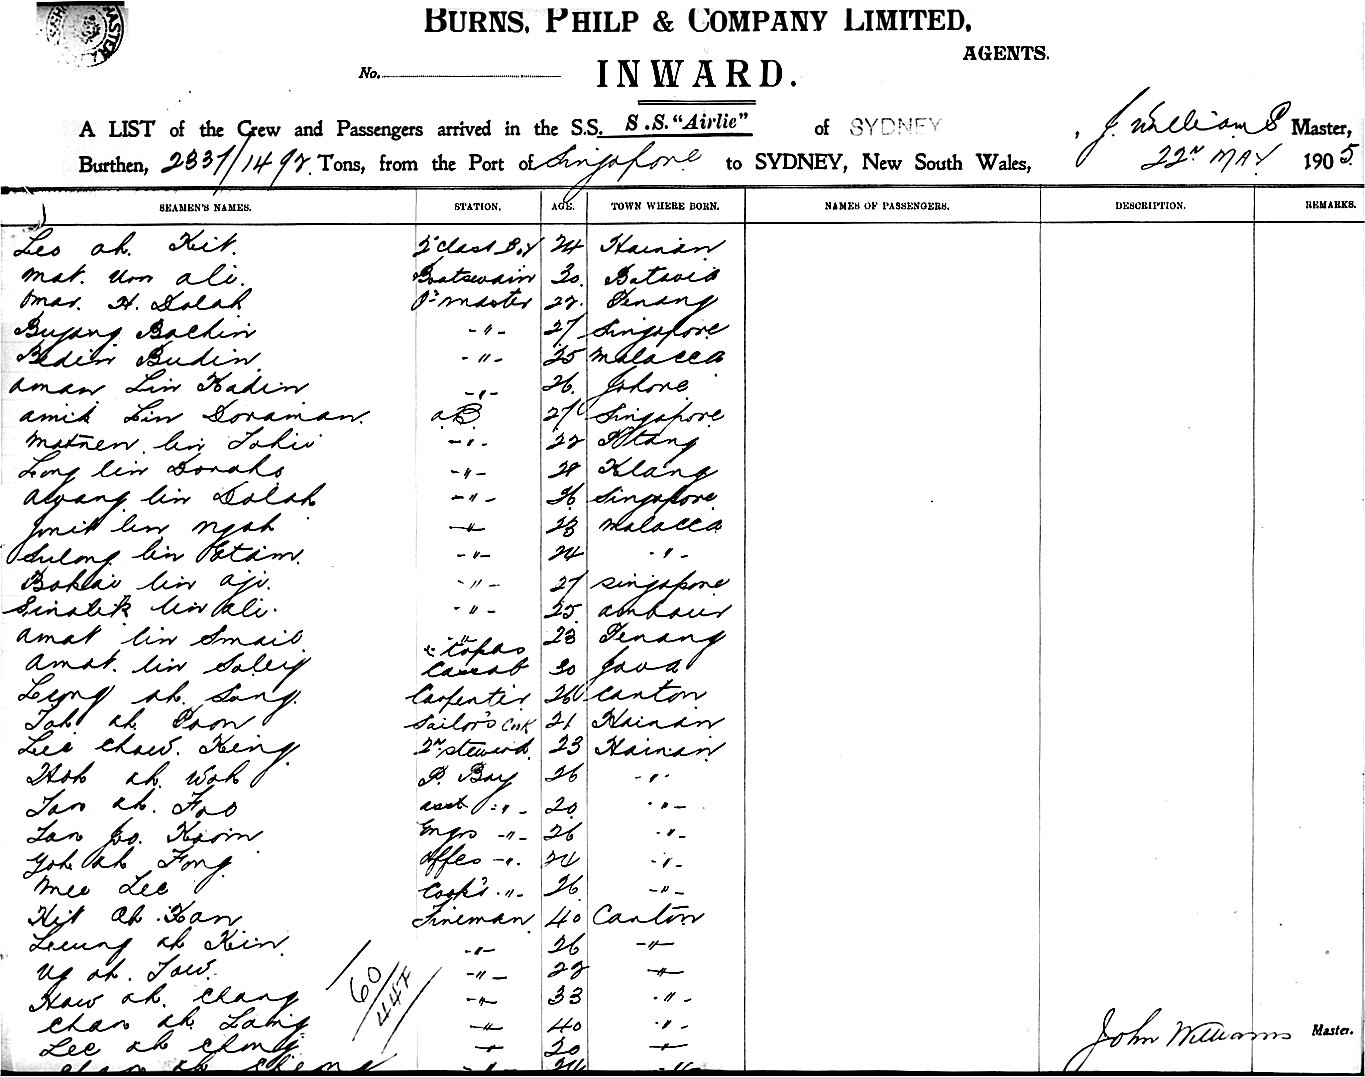 BURNS, PHILP & COMPANY LIMITED,
AGENTS.
No.
INWARD.
A LIST of the Crew and Passengers arrived in the S.S. S.S. "Airlie" of SYDNEY , J. Williams Master,
Burthen, 2337/1492 Tons, from the Port of Singapore to SYDNEY, New South Wales, 22nd MAY 1905
SEAMEN'S NAMES. STATION. AGE. TOWN WHERE BORN. NAMES OF PASSENGERS. DESCRIPTION. REMARKS.
Leo ah. Kit. 2nd Class Boy 24 Hainan
Mat. Ali. Boatswain 30 Batavia
Omar. H. Dolah Qr master 22 Penang
Buyang Bachin -"- 27 Singapore
Bedin Budin -"- 25 Malacca
Aman Lin Kadin -"- 26 Johore
Amit Lin Doraman. A.B 27 Singapore
bin -"- 22 Klang
Long bin -"- 28 Klang
Awang bin Dolah -"- 36 Singapore
bin Ngah -"- 23 Malacca
Sulong bin Etam. -"- 24 -"-
bin Aji. -"- 27 Singapore
bin Ali. -"- 25
Amat bin Smail -"- 23 Penang
Amat. bin & Topas 30 Java
Leong ah. Sang. Carpenter 26 Canton
Toh ah. Poon Sailor's Cook 21 Hainan
Lee Chaw. King 2nd Steward 23 Hainan
Hoh ah. Wah P. Boy 26 -"-
Tan ah. Foo asst -"- 20 -"-
Tan Engrs -"- 26 -"-
Yoh ah Fong offes -"- 24 -"-
Mee Lee Cook's -"- 26 -"-
Kit Ah. Kan Fireman 40 Canton
Leung ah Kin -"- 26 -"-
Ng ah. Tow. -"- 22 -"-
Haw ah. Chang -"- 33 -"-
Chan ah. -"- 40 -"-
Lee ah Chong -"- 20 -"-
Chan ah Cheng -"- 24 -"-
60/447
John Williams Master.